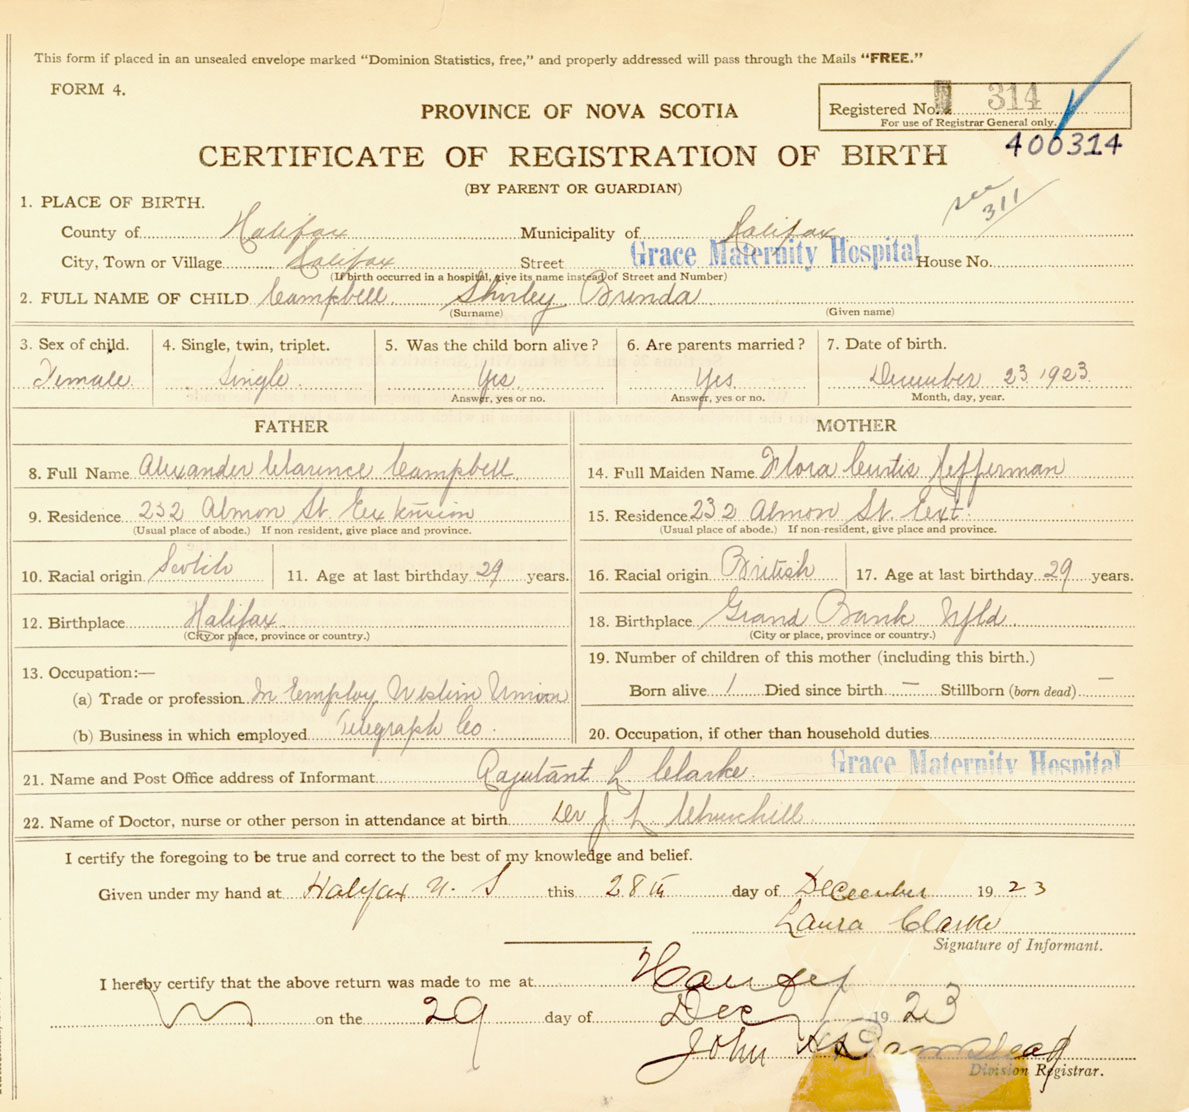 This form if placed in an unsealed envelope marked "Dominion Statistics, free," and properly addressed will pass through the Mails "FREE."
FORM 4.
Registered No. 314
For use of Registrar General only.
PROVINCE OF NOVA SCOTIA
400314
CERTIFICATE OF REGISTRATION OF BIRTH
(BY PARENT OR GUARDIAN)
see 311
1. PLACE OF BIRTH.
County of Halifax Municipality of Halifax
City, Town or Village Halifax Street Grace Maternity Hospital House No.
(If birth occurred in a hospital, give its name instead of Street and Number)
2. FULL NAME OF CHILD Campbell Shirley Brenda
(Surname) (Given name)
3. Sex of child. 4. Single, twin, triplet. 5. Was the child born alive? 6. Are parents married? 7. Date of birth.
Female Single Yes Yes December 23 1923
Answer, yes or no. Answer, yes or no. Month, day, year.
FATHER MOTHER
8. Full Name Alexander Clarence Campbell 14. Full Maiden Name Flora Curtis Hefferman
9. Residence 232 Almon St. 15. Residence 232 Almon St. Ext.
(Usual place of abode.) If non resident, give place and province. (Usual place of abode.) If non-resident, give place and province.
10. Racial origin Scotch 11. Age at last birthday 29 years. 16. Racial origin British 17. Age at last birthday 29 years.
12. Birthplace Halifax 18. Birthplace Grand Bank Nfld
(City or place, province or country.) (City or place, province or country.)
13. Occupation:— 19. Number of children of this mother (including this birth.)
(a) Trade or profession In Employ Western Union Born alive 1 Died since birth — Stillborn (born dead) —
(b) Business in which employed Telegraph Co. 20. Occupation, if other than household duties
21. Name and Post Office address of Informant L Clarke Grace Maternity Hospital
22. Name of Doctor, nurse or other person in attendance at birth Dr J. L. Churchill
I certify the foregoing to be true and correct to the best of my knowledge and belief.
Given under my hand at Halifax N. S this 28th day of December 1923
Laura Clarke
Signature of Informant.
I hereby certify that the above return was made to me at Halifax
on the 29 day of Dec 1923
John
Division Registrar.